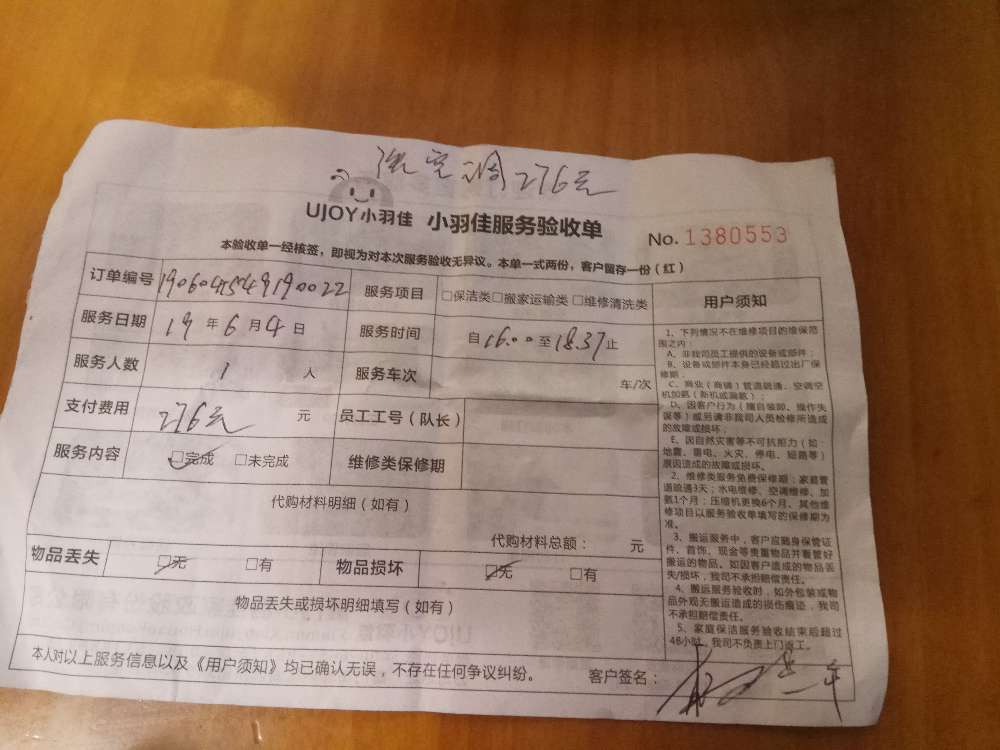 洗空调276元
UJOY小羽佳 小羽佳服务验收单
No. 1380553
本验收单一经核签，即视为对本次服务验收无异议。本单一式两份，客户留存一份（红）
订单编号 服务项目 □保洁类□搬家运输类□维修清洗类
服务日期 19年6月4日 服务时间 自16.00至18.37止
服务人数 1人 服务车次 车/次
支付费用 276元 元 员工工号（队长）
服务内容 □完成 □未完成 维修类保修期
代购材料明细（如有）
代购材料总额： 元
物品丢失 □无 □有 物品损坏 □无 □有
物品丢失或损坏明细填写（如有）
本人对以上服务信息以及《用户须知》均已确认无误，不存在任何争议纠纷。 客户签名：
用户须知
1、下列情况不在维修项目的维保范
围之内：
A、非我司员工提供的设备或部件；
B、设备或部件本身已经超过出厂保
修期；
C、商业（商铺）管道疏通、空调空
机加氨（新机或漏氨）；
D、因客户行为（擅自装卸、操作失
误等）或另请非我司人员检修所造成
的故障或损坏；
E、因自然灾害等不可抗拒力（如
地震、雷电、火灾、停电、短路等）
原因造成的故障或损坏。
2、维修类服务免费保修期：家庭管
道疏通3天；水电维修、空调维修、加
氨1个月；压缩机更换6个月。其他维
修项目以服务验收单填写的保修期为
准。
3、搬运服务中，客户应随身保管证
件、首饰、现金等贵重物品并看管好
搬运的物品。如因客户造成的物品丢
失/损坏，我司不承担赔偿责任。
4、搬运服务验收时，如外包装或物
品外观无搬运造成的损伤痕迹，我司
不承担赔偿责任。
5、家庭保洁服务验收结束后超过
48小时，我司不负责上门返工。